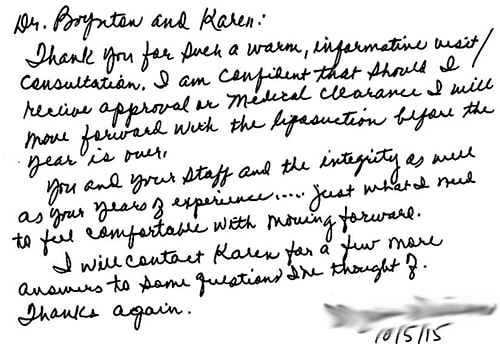 Dr. Boynton and Karen:
Thank you for such a warm, informative visit/
consultation. I am confident that should I
receive approval or medical clearance I will
move forward with the liposuction before the
year is over.
You and your staff and the integrity as well
as your years of experience..... just what I need
to feel comfortable with moving forward.
I will contact Karen for a few more
answers to some questions I've thought of.
Thanks again.
10/5/15